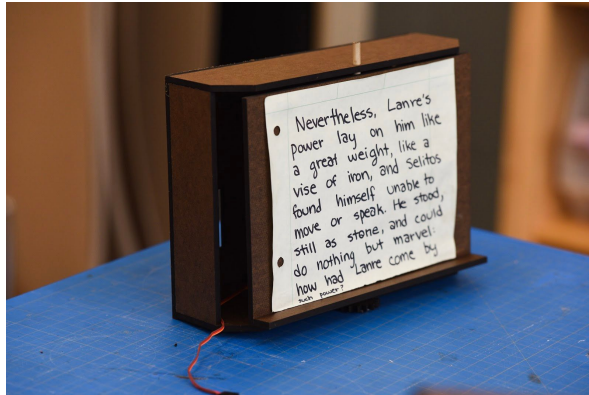 Nevertheless, Lanre's
power lay on him like
a great weight, like a
vise of iron, and Selitos
found himself unable to
move or speak. He stood,
still as stone, and could
do nothing but marvel:
how had Lanre come by
such power?